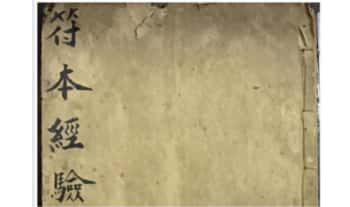 符本經驗